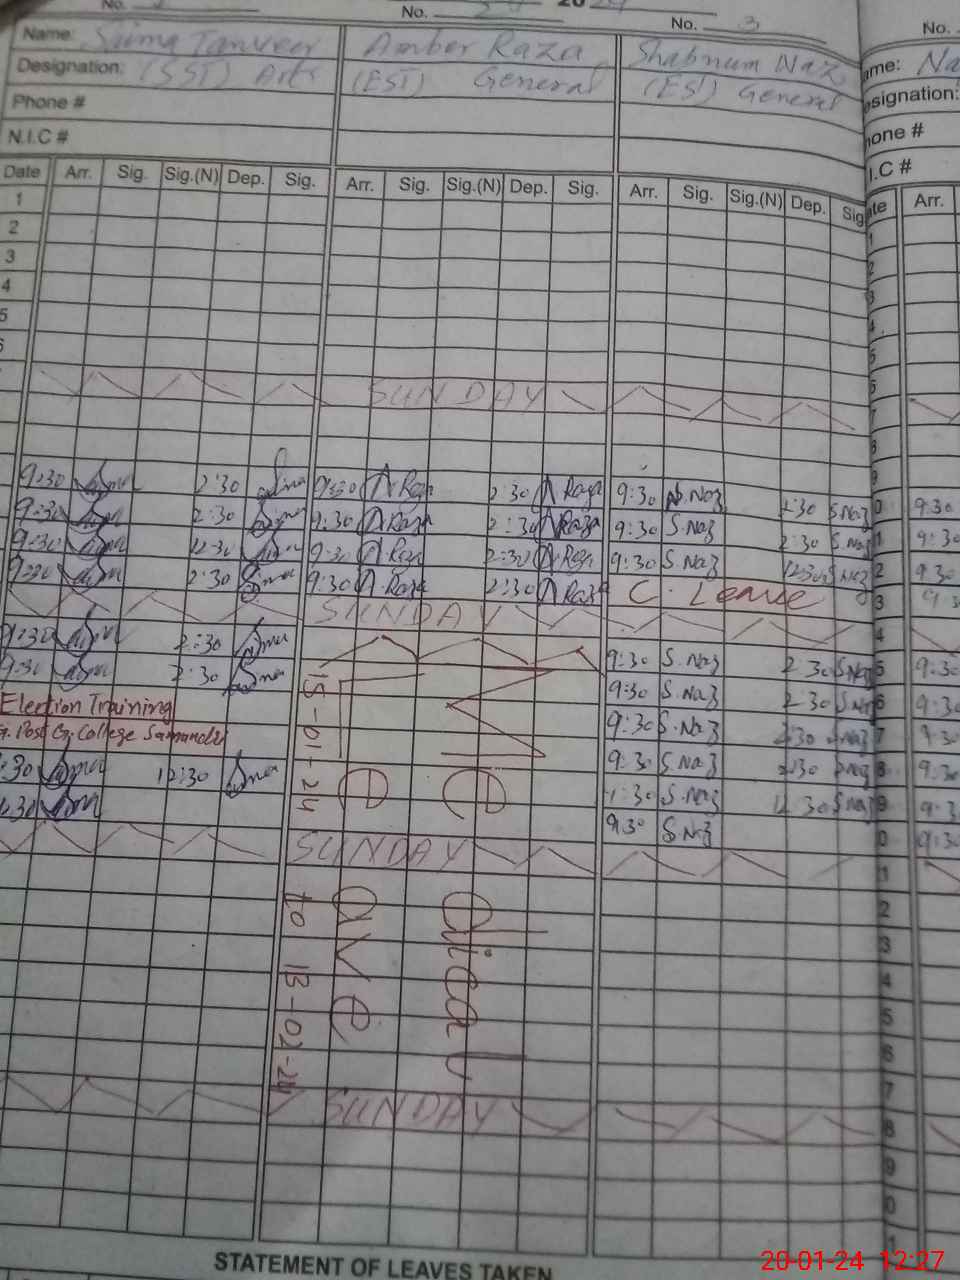 No. No. 20 24 No. 3 No.
Name: Sima Tanveer Amber Raza Shabnum Naz ame: Na
Designation: (SST) Arts (EST) General (EST) General esignation:
Phone # hone #
N.I.C # I.C #
Date Arr. Sig. Sig.(N) Dep. Sig. Arr. Sig. Sig.(N) Dep. Sig. Arr. Sig. Sig.(N) Dep. Sig ate Arr.
1 1
2 2
3 3
4 4
5 5
6
SUNDAY 7
8
9
9:30 2:30 9:30 A Raza 2:30 A Raza 9:30 S.Naz 2:30 S.Naz 0 9:30
9:30 2:30 9:30 A Raza 2:30 A Raza 9:30 S.Naz 2:30 S.Naz 1 9:30
9:30 12:30 9:30 A Raza 2:30 A Raza 9:30 S.Naz 12:30 S.Naz 2 9:30
9:30 2:30 Sima 9:30 A.Raza 2:30 A Raza C. Leave 3
SUNDAY 4
9:30 2:30 9:30 S.Naz 2:30 S.Naz 5 9:30
9:30 2:30 9:30 S.Naz 2:30 S.Naz 6 9:30
Election Training 9:30 S.Naz 2:30 S.Naz 7 9:30
G. Post G. College Samandri 9:30 S.Naz 2:30 S.Naz 8 9:30
:30 12:30 S.Naz 12:30 S.Naz 9 9:3
:30 9:30 S.Naz 0 9:30
SUNDAY 1
2
3
4
5
6
7
15-01-24 to 13-02-24
Leave
Medical
SUNDAY 8
9
0
1
STATEMENT OF LEAVES TAKEN
20-01-24 12:27